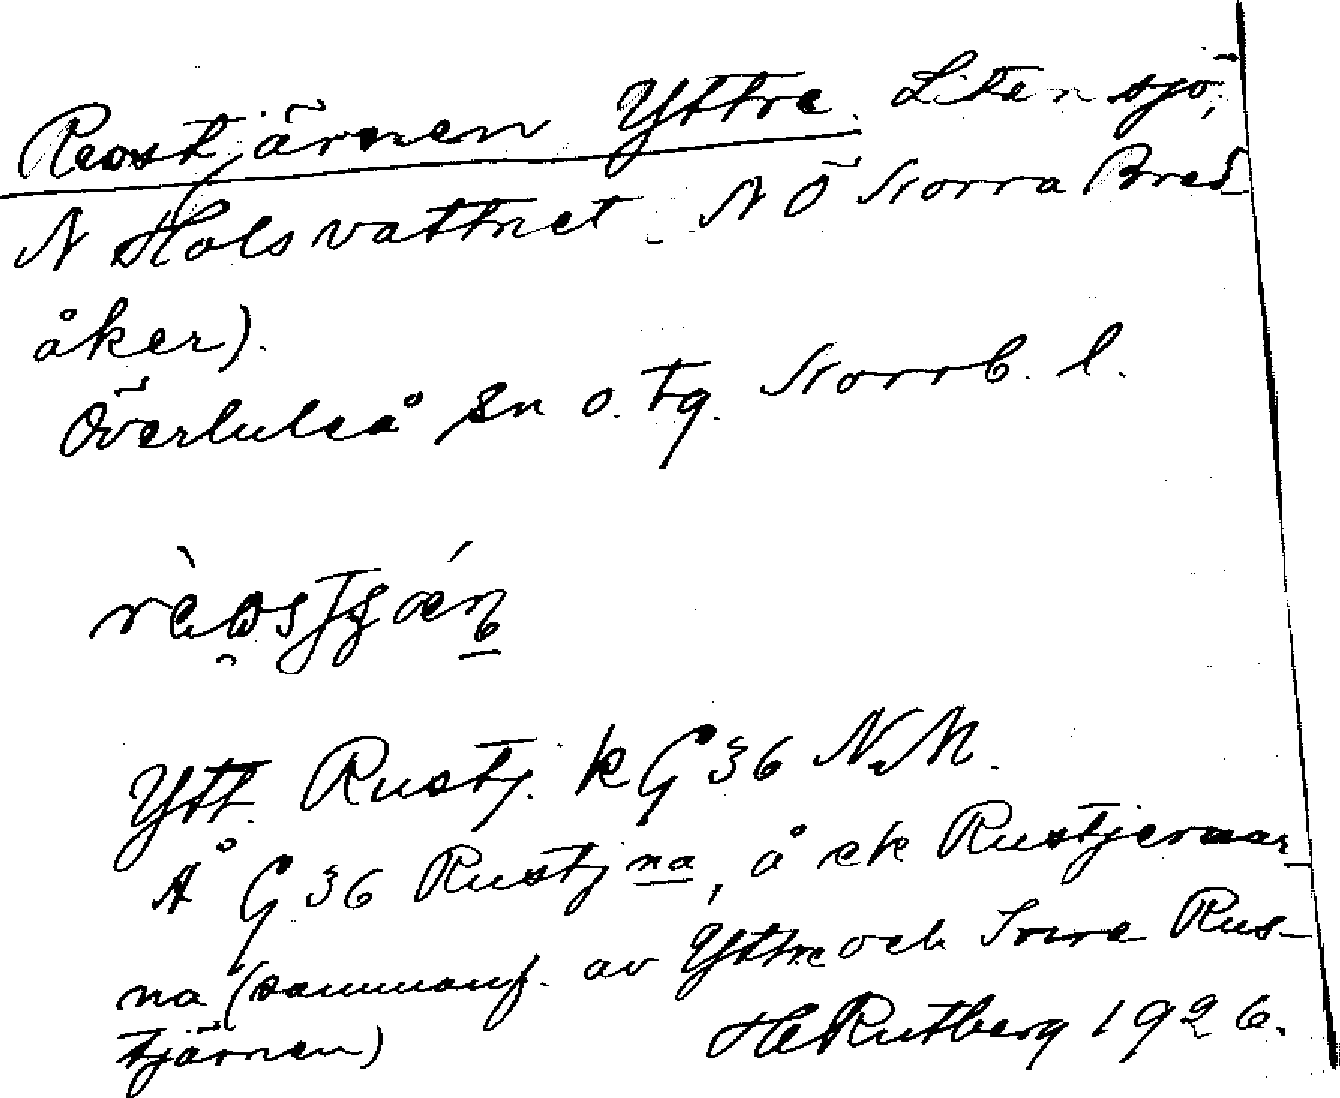 Reostjärnen Yttre. Liten sjö,
N Holsvattnet. N Ö Norra Bred-
åker).
Överluleå sn o. tg. Norrb. l.
Ytt. Rustj. k G 36 N.M.
Å G 36 Rustjna, å ek Rustjernar-
na (sammanf. av Yttre och Inre Rus-
tjärnen) HRutberg 1926.